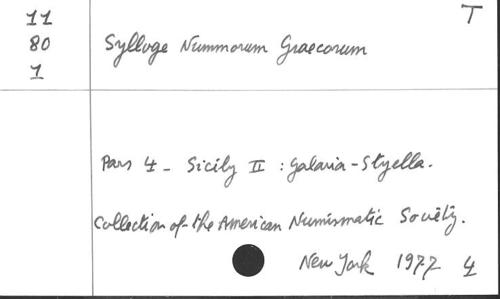 11
T
80 Sylloge Nummorum Graecorum
1
Pars 4 - Sicily II : Galaria - Styella.
Collection of the American Numismatic Society.
New York 1977 4